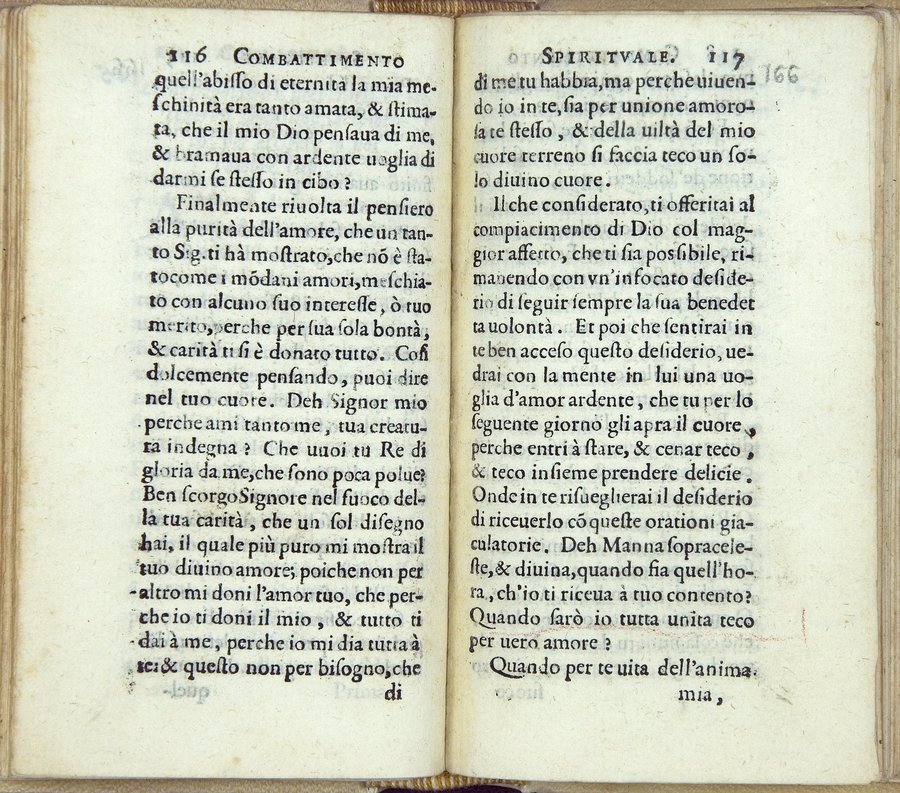 116 COMBATTIMENTO
quell'abisso di eternita la mia me-
schinità era tanto amata, & stima-
ta, che il mio Dio pensaua di me,
& bramaua con ardente uoglia di
darmi se stesso in cibo?
Finalmente riuolta il pensiero
alla purità dell'amore, che un tan-
to Sig. ti hà mostrato, che nō è sta-
to come i mōdani amori, meschia-
to con alcuno suo interesse, ò tuo
merito, perche per sua sola bontà,
& carità ti si è donato tutto. Cosi
dolcemente pensando, puoi dire
nel tuo cuore. Deh Signor mio
perche ami tanto me, tua creatu
ra indegna? Che uuoi tu Re di
gloria da me, che sono poca polue?
Ben scorgo Signore nel fuoco del-
la tua carità, che un sol disegno
hai, il quale più puro mi mostra il
tuo diuino amore; poiche non per
altro mi doni l'amor tuo, che per-
che io ti doni il mio, & tutto ti
dai à me, perche io mi dia tutta à
te: & questo non per bisogno, che
di
SPIRITVALE. 117
di me tu habbia, ma perche uiuen-
do io in te, sia per unione amoro-
sa te stesso, & della uiltà del mio
cuore terreno si faccia teco un so-
lo diuino cuore.
Il che considerato, ti offeritai al
compiacimento di Dio col mag-
gior affetto, che ti sia possibile, ri-
manendo con vn'infocato deside-
rio di seguir sempre la sua benedet
ta uolontà. Et poi che sentirai in
te ben acceso questo desiderio, ue-
drai con la mente in lui una uo-
glia d'amor ardente, che tu per lo
seguente giorno gli apra il cuore,
perche entri à stare, & cenar teco,
& teco insieme prendere delicie.
Onde in te risueglierai il desiderio
di riceuerlo cō queste orationi gia-
culatorie. Deh Manna sopracele-
ste, & diuina, quando fia quell'ho-
ra, ch'io ti riceua à tuo contento?
Quando sarò io tutta unita teco
per uero amore?
Quando per te uita dell'anima
mia,